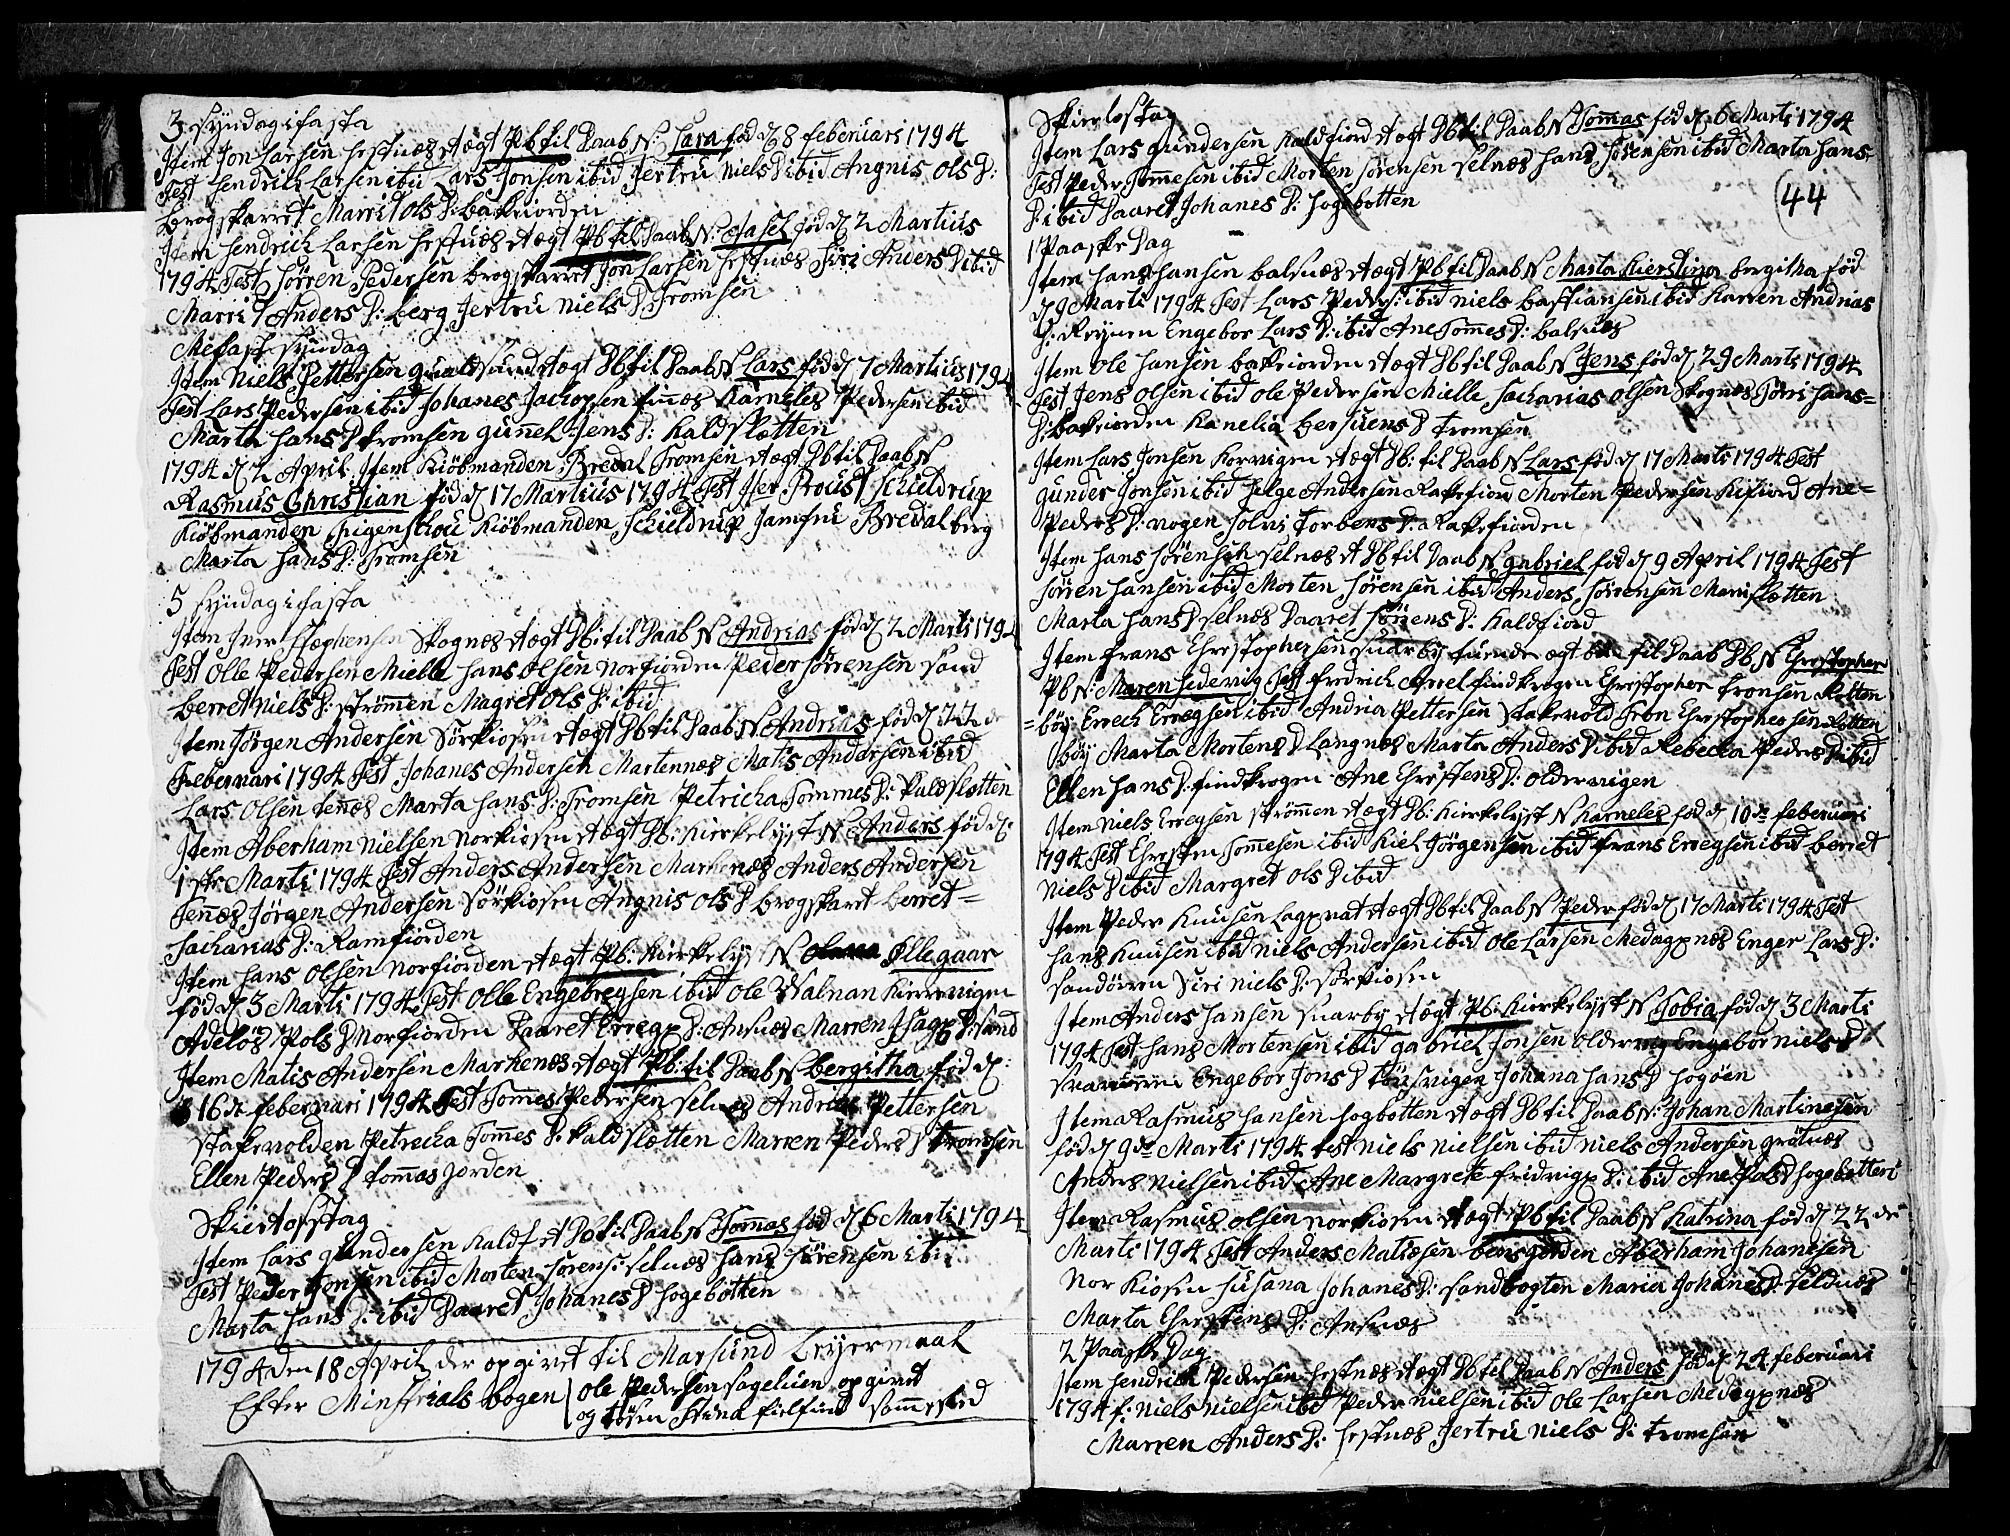 3 Syndag i fasta
Item Jon Larsen hestnæs Ægt Pb til Daab N: Lara fød d 8 februari 1794
Test hendrich Larsen ibid Lars Jonsen ibid Jertru Niels D ibid Angnis Ols D:
brogskarret Marrit Ols D: bakfiorden
Item hendrich Larsen hestnæs Ægt Pb til Daab N: Aasel fød d 2 Martius
1794 Test Sørren Pedersen brogskarret Jon Larsen hestnæs Siri Anders D ibid
Marrit Anders D: berg Jertru Niels D Tromsen
Mefast Syndag
Item Niels Pettersen qualsund Ægt Db til Daab N Lars fød d 7 Martius 1794
Test Lars Pedersen ibid Johanes Jachopsen finæs Karneles Pedersen ibid
Marta hans D tromsen gunnel Jens D: Kaldslætten
1794 d 2 April Item Kiøbmanden Bredal Tromsen Ægt Db til Daab N
Rasmus Christian fød d 17 Martius 1794 Test Her Proust Schieldrup
Kiøbmanden figenschou Kiøbmanden Schieldrup Jamfru Bredal berg
Marta Hans D: Tromsen
5 Syndag i fasta
Item Iver Stephensen Skognæs Ægt Db: til Daab N Andreas fød d 2 Marti 1794
Test Olle Pedersen Mielle Hans Olsen Norfiorden Peder Sørrensen sand
berret Niels D: strømen Magret Ols D: ibid
Item Jørgen Andersen Sørkiosen Ægt Db til Daab N Andreas fød d 22 de
Februari 1794 Test Johanes Andersen Martennæs Matis Andersen ibid
Lars Olsen tennæs Marta hans D: Tromsen Petricka Tommes D: Kaldslætten
Item Aberham Nielsen Norkiosen Ægt Db: Kirkelyst N Anders fød d:
1 ste Marti 1794 Test Anders Andersen Markenæs Anders Andersen
Tennæs Jørgen Andersen Sørkiosen Angnis Ols D brogskaret berret=
Sacharias D: Ramfiorden
Item Hans Olsen Norfiorden Ægt Pb: Kirkelyst N Ellegaar
fød d 3 Marti 1794 Test Olle Engebregsen ibid Ole Walnan Kiervigen
Adelos Pols D Norfiorden Daaret Erregs D: Ansnæs Marren Isags D: sand
Item Matis Andersen Markenæs Ægt Pb: til Daab N bergitha fød d:
16 de februari 1794 Test Tomes Pedersen selnæs Andreas Pettersen
stakevolden Petricka Tomes D: Kaldslætten Marren Peders D tromsen
Ellen Peders D tomasjorden
Skiertorstag
Item Lars gundersen Kaldf Æ Db til Daab N Tomas fød d 6 Marti 1794
Test Peder Tomsen ibid Morten Sørens: selnæs Hans Sørensen ibid
Marta Hans D: ibid Daaret Johanes D Hogebotten
1794 den 18 April der opgivet til Marsund Leyermaal
Efter Ministrials bogen | Ole Pedersen opgivet
og tøsen Stina fielfind somested
Skierlostag
Item Lars gundersen Kaldfiord Ægt Db til Daab N Tomas fød d 6 Marti 1794
Test Peder Tommesen ibid Morten Sørensen selnæs Hans Sørensen ibid Marta Hans
D: ibid Daaret Johanes D: Hogebotten
44
1 Paaske Dag
Item Hans Hansen balsnæs Ægt Pb til Daab N Marta Kierstina bergitha fød
d 9 Marti 1794 Test Lars Peders: ibid Niels bastiansen ibid Karren Andrias
D: Røynen Engebor Lars D: ibid Ane Tomes D: balsnæs
Item Ole Hansen bakfiorden Ægt Db til Daab N Jens fød d 29 Marti 1794
Test Jens Olsen ibid Ole Pedersen Mielle Sacharias Olsen Skognæs Søri Hans=
D: bakfiorden Kanelia bersvens D tromsen
Item Lars Jonsen Korvigen Ægt Db: til Daab N Lars fød d 17 Marti 1794 Test
gunder Jonsen ibid Helge Andersen Rakefiord Morten Pedersen Kifiord Ane=
Peders D: vogen Solvi Torbens D: Rakefiorden
Item Hans Sørensen selnæs Æ Db til Daab N gabriel fød d 9 April 1794 Test
Sørren Hansen ibid Morten Sørensen ibid Anders Sørrensen Marislætten
Marta Hans D selnæs Daaret Sørens D: Kaldfiord
Item frans Christophersen suarby Ægt til Daab Db N Christopher
Pb N: Maren Hedevig Test fredrich Arrel findkrogen Christopher tronsen Rotten
=bøy Errich Erregsen ibid Andria Pettersen stakevold Tron Christophersen Rotten
bøy Marta Mortens D Langnæs Marta Anders D ibid Rebecka Peders D ibid
Ellen Hans D: findkrogen Ane Christens D: oldervigen
Item Niels Erregsen strømmen Ægt Db: Kirkelyst N Karneles fød d 10 de februari
1794 Test Christen Tommesen ibid Kiel Jørgensen ibid frans Erregsen ibid berret
Niels D ibid Margret Ols D ibid
Item Peder Knusen Lagsvat Ægt Db til Daab N Peder fød d 17 Marti 1794 Test
Hans Knusen ibid Niels Andersen ibid Ole Larsen Medagsnæs Enger Lars D:
sandøiren Siri Niels D: sørkiosen
Item Anders Hansen suarby Ægt Pb: Kirkelyst N Tobia fød d 3 Marti
1794 Test Hans Mortensen ibid gabriel Jonsen oldervig Engebor Niels D
Engebor Jons D Johana Hans D Hogøen
Item Rasmus Hansen Hogbotten Ægt Db til Daab N: Johan Martinesen
fød d 9 de Marti 1794 Test Niels Nielsen ibid Niels Andersen grøtnæs
Anders Nielsen ibid Ane Margrete fridrigs D: ibid Ane Pols D Hogebotten
Item Rasmus Olsen Norkiosen Ægt Pb til Daab N Katrina fød d 22 de
Marti 1794 Test Anders Matisen bensjorden Aberham Johanesen
Nor Kiosen Susana Johanes D: sandbogten Maria Johanes D: selnæs
Marta Christens D: Ansnæs
2 Paaske Dag
Item Hendrich Pedersen Hestnæs Ægt Db til Daab N Anders fød d 24 februari
1794 f: Niels Nielsen ibid Peder Nielsen ibid Ole Larsen Medagsnæs
Marren Anders D: Hestnæs Jertru Niels D: tromsen